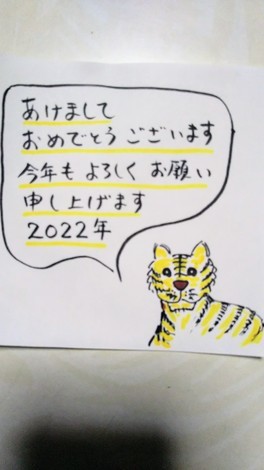 あけまして
おめでとうございます
今年もよろしくお願い
申し上げます
2022年